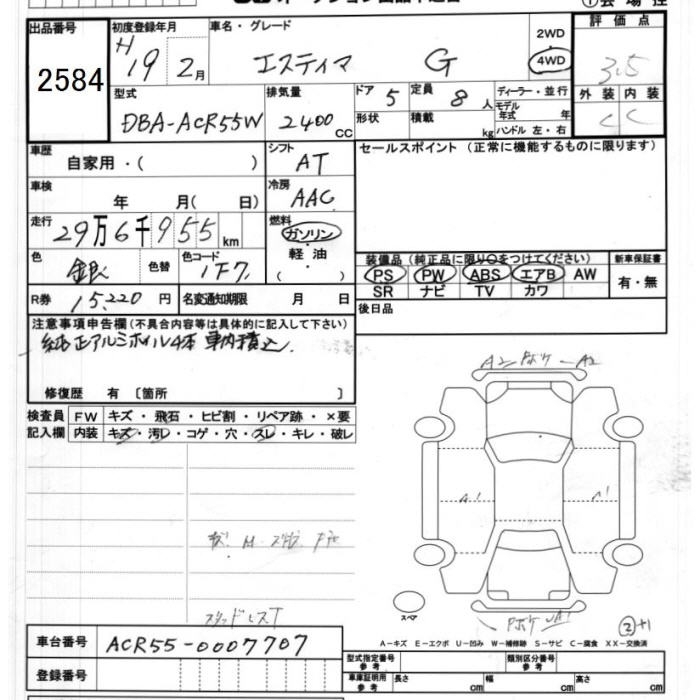 出品番号 初度登録年月 車名・グレード 2WD 評価点
2584 H19 2月 エスティマ G 4WD 3.5
型式 排気量 ドア 5 定員 8人 ディーラー・並行 外装 内装
DBA-ACR55W 2400cc 形状 積載 kg モデル年式 年 C C
ハンドル 左・右
車歴 自家用・( ) シフト AT セールスポイント (正常に機能するものに限ります)
車検 年 月( 日) 冷房 AAC
走行 29万6千955km 燃料 ガソリン
軽・油
( )
色 銀 色替 色コード 1F7 装備品 (純正品に限り○をつけてください) 新車保証書
PS PW ABS エアB AW 有・無
SR ナビ TV カワ
R券 15,220円 名変通知期限 月 日 後日品
注意事項申告欄 (不具合内容等は具体的に記入して下さい)
純正アルミホイル4本 車内積込
修復歴 有 〔箇所 〕
検査員 FW キズ・飛石・ヒビ割・リペア跡・×要
記入欄 内装 キズ・汚レ・コゲ・穴・スレ・キレ・破レ
A2 ボケ A2
A1 A1
スタッドレスT
スペア
A-キズ E-エクボ U-凹み W-補修跡 S-サビ C-腐食 XX-交換済
車台番号 ACR55-0007707
型式指定番号 参考 類別区分番号 参考
登録番号 車庫証明用 参考 長さ cm 幅 cm 高さ cm